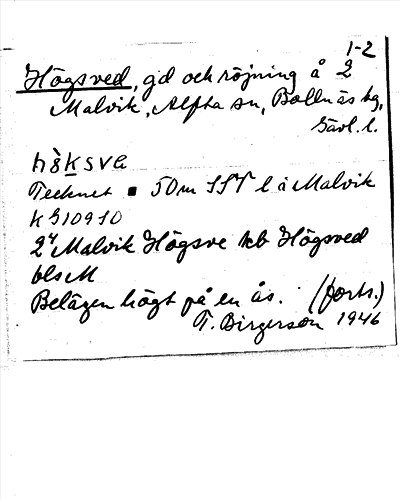 1-2
Högsved, gd och röjning å 2
Malvik, Alfta sn, Bollnäs kg,
Gävl. l.
hö̀ksve
Tecknet ■ 50m SSV l i Malvik
K 510910
2⁴ Malvik Högsve kb Högsved
bls M
Belägen högt på en ås. (forts.)
T. Birgerson 1946